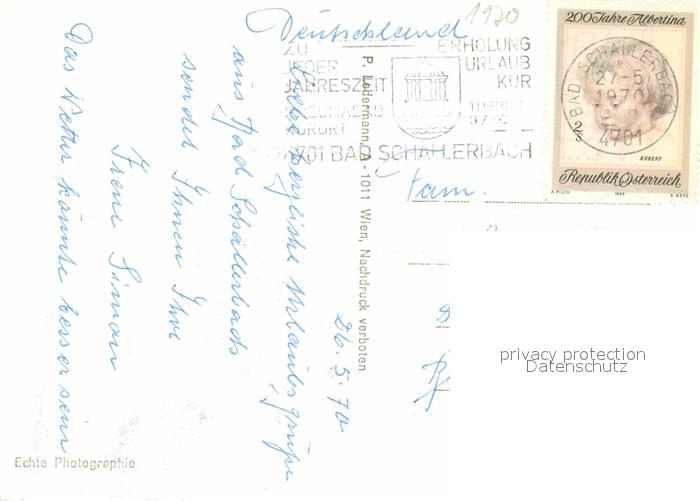 Deutschland
1970
ZU
JEDER
JAHRESZEIT
ERHOLUNG
URLAUB
KUR
KURORT
4701 BAD SCHALLERBACH
200 Jahre Albertina
BAD SCHALLERBACH
27.-5.
1970
4701
2
S
RUBENS
Republik Österreich
A. PILCH
1969
Fam.
P. Ledermann, A-1011 Wien, Nachdruck verboten
26.5.70
Liebe herzliche Urlaubsgrüße
aus Bad Schallerbach
sendet Ihnen Ihre
Irene Simon
Das Wetter könnte besser sein
Echte Photographie
privacy protection
Datenschutz